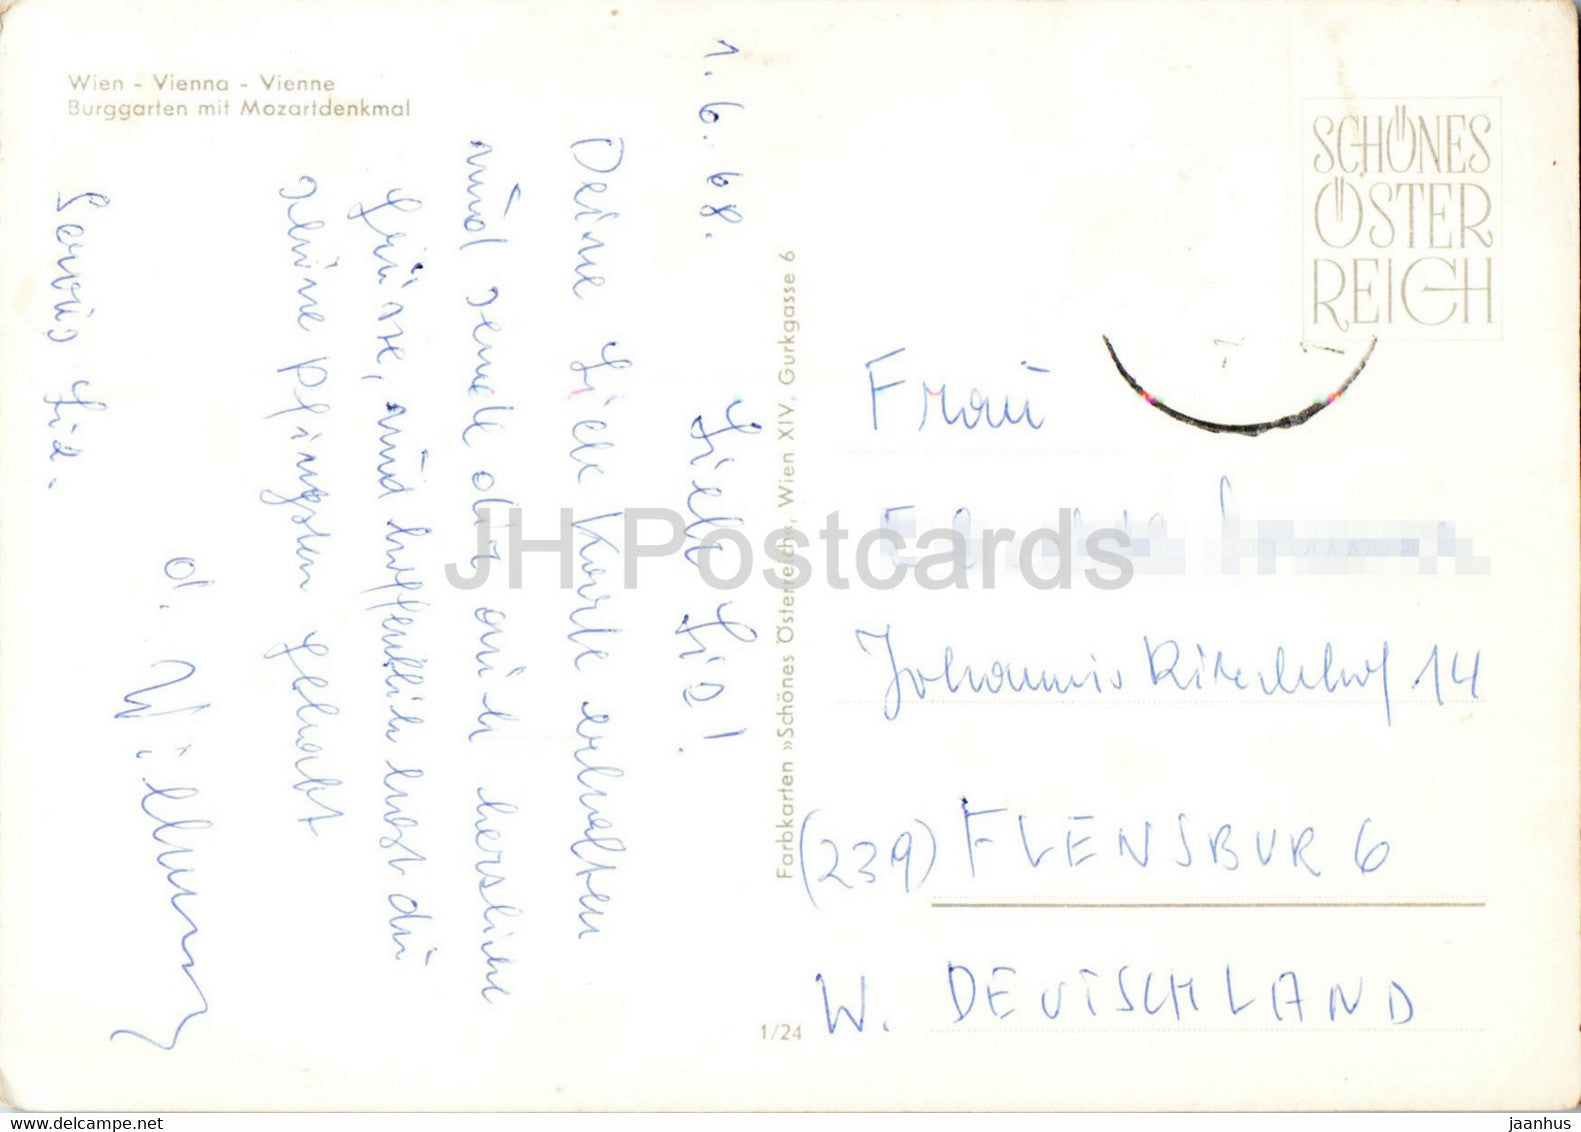 Wien - Vienna - Vienne
Burggarten mit Mozartdenkmal
1. 6. 68.
Liebe Lia!
Deine Liebe Karte erhalten
und sende dir auch herzliche
Grüsse, und hoffentlich hast du
schöne Pfingsten gehabt
d. Willi
Servus Lia.
Farbkarten »Schönes Österreich«, Wien XIV, Gurkgasse 6
1/24
SCHÖNES
ÖSTER
REICH
Frau
Johannis Kirchhof 14
(239) FLENSBURG
W. DEUTSCHLAND
JH Postcards
www.delcampe.net
jaanhus